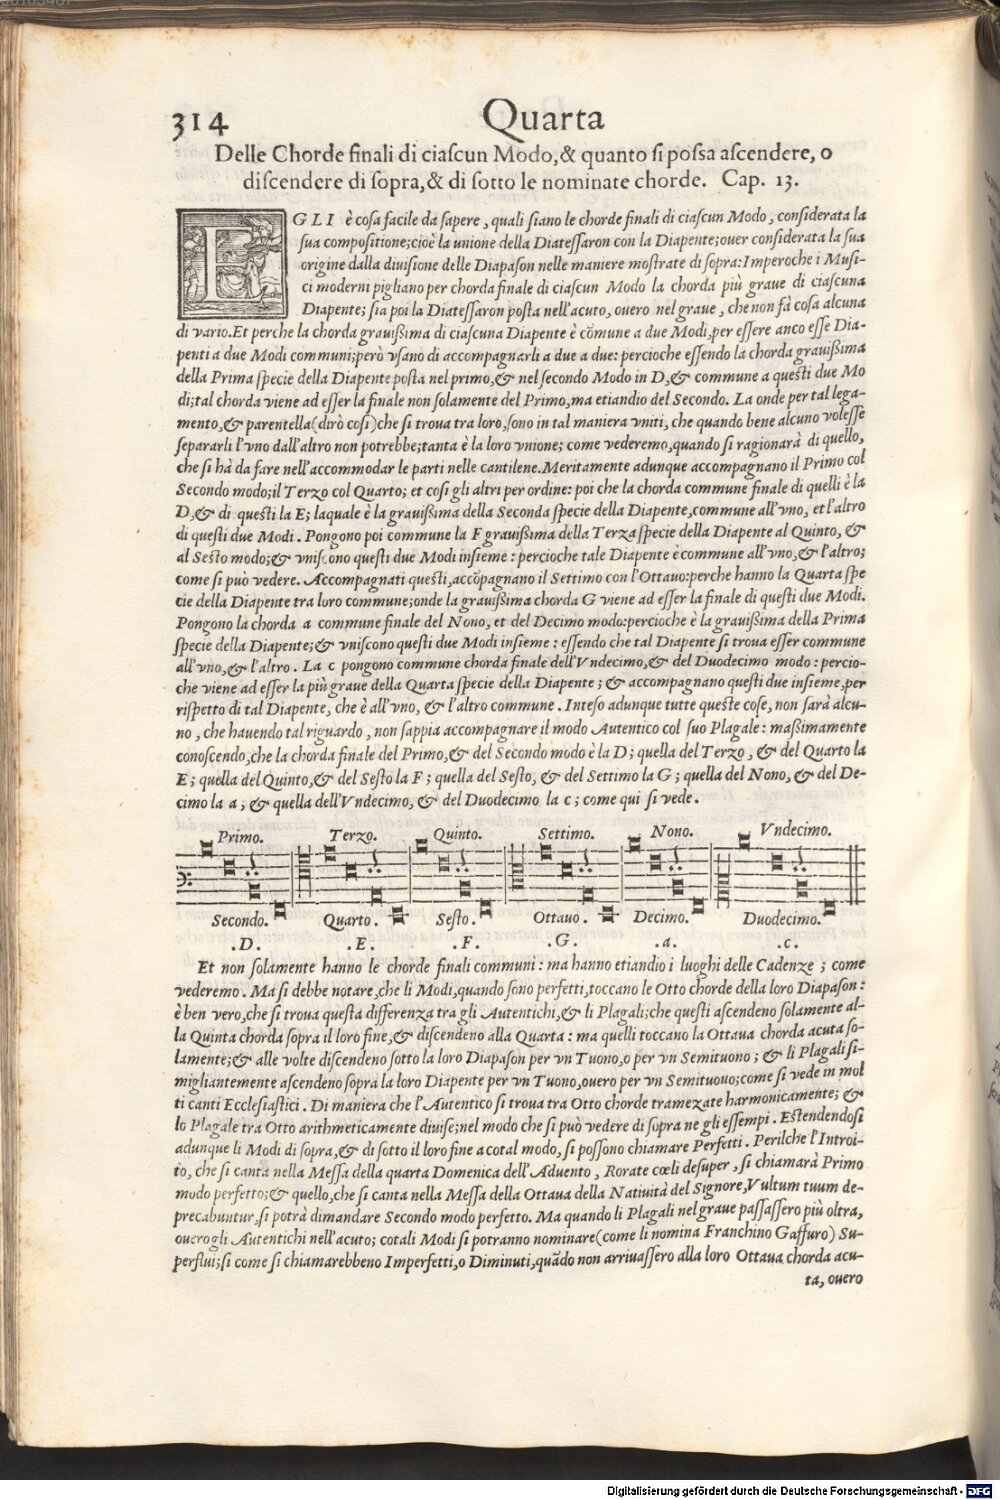 314
Quarta
Delle Chorde finali di ciaſcun Modo, & quanto ſi poſſa aſcendere, o
diſcendere di ſopra, & di ſotto le nominate chorde. Cap. 13.
EGLI è coſa facile da ſapere, quali ſiano le chorde finali di ciaſcun Modo, conſiderata la
ſua compoſitione; cioè la unione della Diateſſaron con la Diapente; ouer conſiderata la ſua
origine dalla diuiſione delle Diapaſon nelle maniere moſtrate di ſopra: Imperoche i Muſi-
ci moderni pigliano per chorda finale di ciaſcun Modo la chorda più graue di ciaſcuna
Diapente; ſia poi la Diateſſaron poſta nell'acuto, ouero nel graue, che non fà coſa alcuna
di vario. Et perche la chorda grauiſſima di ciaſcuna Diapente è cõmune a due Modi, per eſſere anco eſſe Dia-
penti a due Modi communi; però vſano di accompagnarli a due a due: percioche eſſendo la chorda grauiſſima
della Prima ſpecie della Diapente poſta nel primo, & nel ſecondo Modo in D, & commune a queſti due Mo
di; tal chorda viene ad eſſer la finale non ſolamente del Primo, ma etiandio del Secondo. La onde per tal lega-
mento, & parentella (dirò coſi) che ſi troua tra loro, ſono in tal maniera vniti, che quando bene alcuno voleſſe
ſepararli l'vno dall'altro non potrebbe; tanta è la loro vnione; come vederemo, quando ſi ragionarà di quello,
che ſi hà da fare nell'accommodar le parti nelle cantilene. Meritamente adunque accompagnano il Primo col
Secondo modo; il Terzo col Quarto; et coſi gli altri per ordine: poi che la chorda commune finale di quelli è la
D, & di queſti la E; laquale è la grauiſſima della Seconda ſpecie della Diapente, commune all'vno, et l'altro
di queſti due Modi. Pongono poi commune la F grauiſſima della Terza ſpecie della Diapente al Quinto, &
al Seſto modo; & vniſcono queſti due Modi inſieme: percioche tale Diapente è commune all'vno, & l'altro;
come ſi può vedere. Accompagnati queſti, accõpagnano il Settimo con l'Ottauo: perche hanno la Quarta ſpe
cie della Diapente tra loro commune; onde la grauiſſima chorda G viene ad eſſer la finale di queſti due Modi.
Pongono la chorda a commune finale del Nono, et del Decimo modo: percioche è la grauiſſima della Prima
ſpecie della Diapente; & vniſcono queſti due Modi inſieme: eſſendo che tal Diapente ſi troua eſſer commune
all'vno, & l'altro. La c pongono commune chorda finale dell'Vndecimo, & del Duodecimo modo: percio-
che viene ad eſſer la più graue della Quarta ſpecie della Diapente; & accompagnano queſti due inſieme, per
riſpetto di tal Diapente, che è all'vno, & l'altro commune. Inteſo adunque tutte queſte coſe, non ſarà alcu-
no, che hauendo tal riguardo, non ſappia accompagnare il modo Autentico col ſuo Plagale: maſſimamente
conoſcendo, che la chorda finale del Primo, & del Secondo modo è la D; quella del Terzo, & del Quarto la
E; quella del Quinto, & del Seſto la F; quella del Seſto, & del Settimo la G; quella del Nono, & del De-
cimo la a; & quella dell'Vndecimo, & del Duodecimo la c; come qui ſi vede.
Primo. Terzo. Quinto. Settimo. Nono. Vndecimo.
Secondo. Quarto. Seſto. Ottauo. Decimo. Duodecimo.
.D. .E. .F. .G. .a. .c.
Et non ſolamente hanno le chorde finali communi: ma hanno etiandio i luoghi delle Cadenze; come
vederemo. Ma ſi debbe notare, che li Modi, quando ſono perfetti, toccano le Otto chorde della loro Diapaſon:
è ben vero, che ſi troua queſta differenza tra gli Autentichi, & li Plagali; che queſti aſcendeno ſolamente al-
la Quinta chorda ſopra il loro fine, & diſcendeno alla Quarta: ma quelli toccano la Ottaua chorda acuta ſo-
lamente; & alle volte diſcendeno ſotto la loro Diapaſon per vn Tuono, o per vn Semituono; & li Plagali ſi-
migliantemente aſcendeno ſopra la loro Diapente per vn Tuono, ouero per vn Semituouo; come ſi vede in mol
ti canti Eccleſiaſtici. Di maniera che l'Autentico ſi troua tra Otto chorde tramezate harmonicamente; &
lo Plagale tra Otto arithmeticamente diuiſe; nel modo che ſi può vedere di ſopra ne gli eſſempi. Eſtendendoſi
adunque li Modi di ſopra, & di ſotto il loro fine a cotal modo, ſi poſſono chiamare Perfetti. Perilche l'Introi-
to, che ſi canta nella Meſſa della quarta Domenica dell'Aduento, Rorate cœli deſuper, ſi chiamarà Primo
modo perfetto; & quello, che ſi canta nella Meſſa della Ottaua della Natiuità del Signore, Vultum tuum de-
precabuntur, ſi potrà dimandare Secondo modo perfetto. Ma quando li Plagali nel graue paſſaſſero più oltra,
ouero gli Autentichi nell'acuto; cotali Modi ſi potranno nominare (come li nomina Franchino Gaffuro) Su-
perflui; ſi come ſi chiamarebbeno Imperfetti, o Diminuti, quãdo non arriuaſſero alla loro Ottaua chorda acu-
ta, ouero
Digitalisierung gefördert durch die Deutsche Forschungsgemeinschaft - DFG